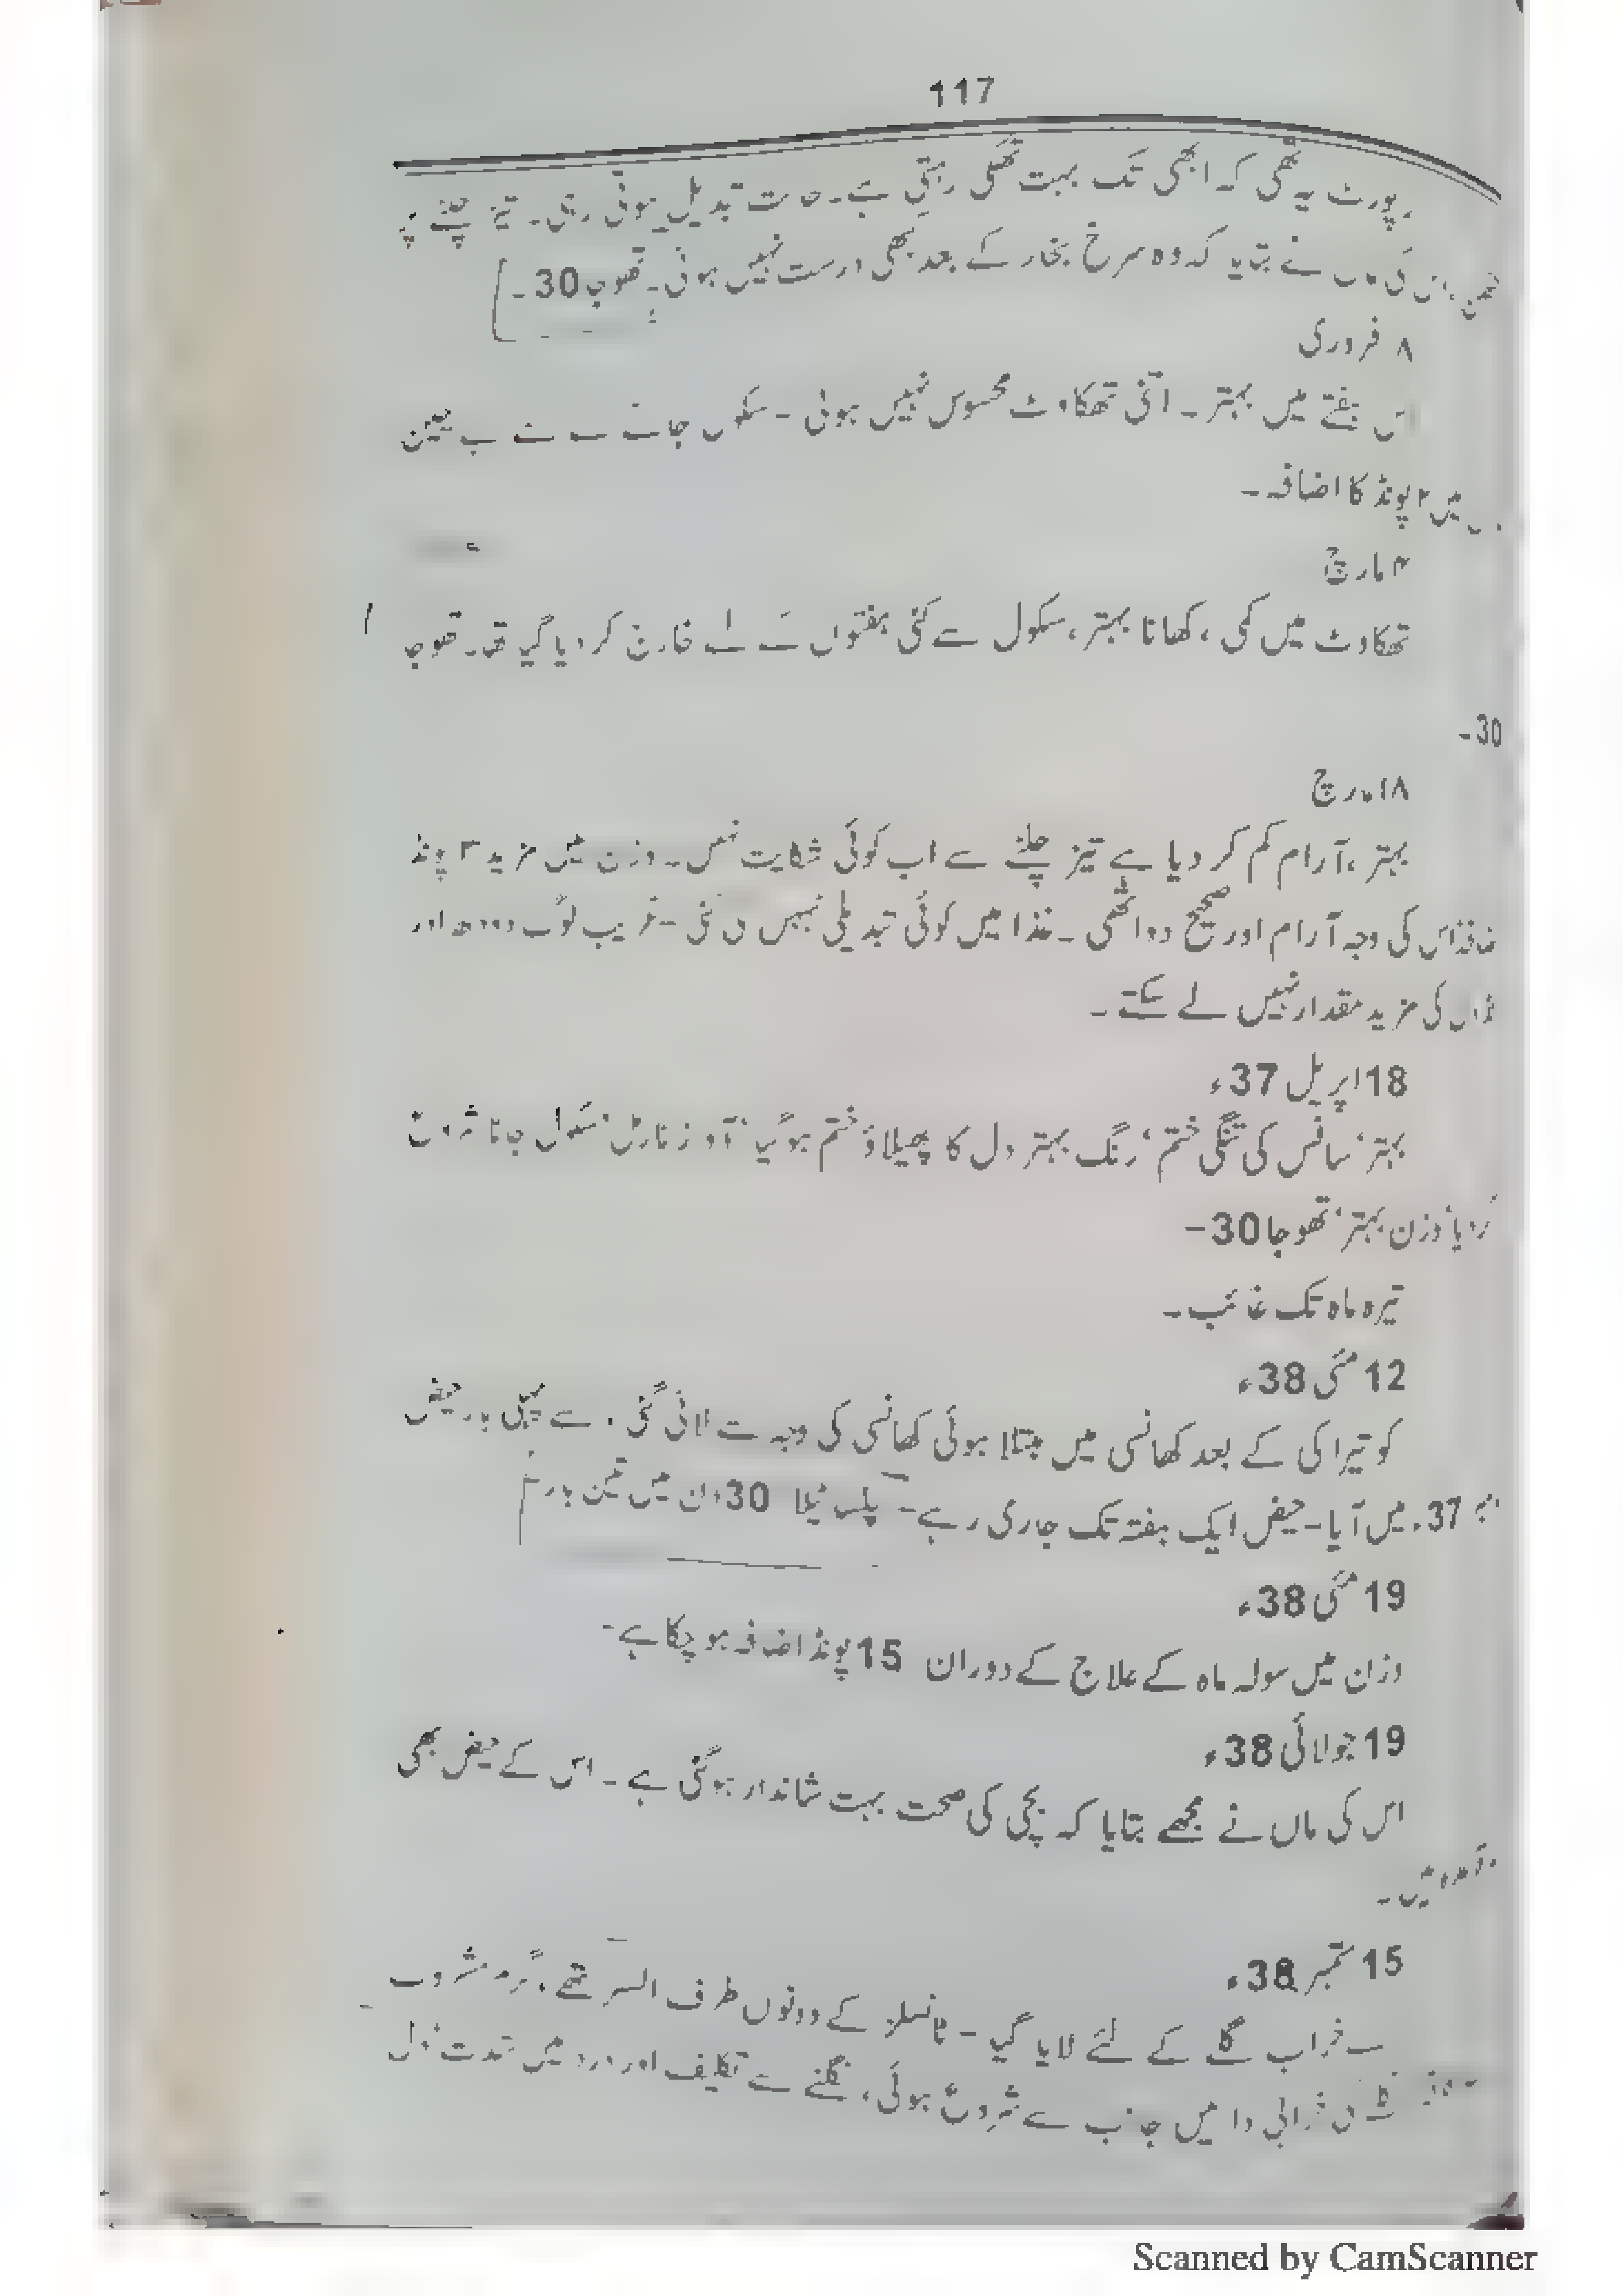 117
رپورٹ یہ تھی کہ ابھی تک بہت تھکی رہتی ہے۔ حالت تبدیل ہوتی رہی۔ تیز چلنے پر
اس کی ماں نے بتایا کہ وہ سرخ بخار کے بعد بھی درست نہیں ہوئی۔ تھوجا 30۔
۸ فروری
اس ہفتے میں بہتر۔ اتنی تھکاوٹ محسوس نہیں ہوئی۔ سکول جانے سے
میں ۲ پونڈ کا اضافہ۔
۴ مارچ
تھکاوٹ میں کمی، کھانا بہتر، سکول سے کئی ہفتوں کے لئے خارج کر دیا گیا تھا۔ تھوجا
30۔
۱۸ مارچ
بہتر، آرام کم کر دیا ہے تیز چلنے سے اب کوئی شکایت نہیں۔ وزن میں مزید ۳ پونڈ
اضافہ اس کی وجہ آرام اور صحیح دوا تھی۔ غذا میں کوئی تبدیلی نہیں کی گئی۔ غریب لوگ دودھ اور
کی مزید مقدار نہیں لے سکتے۔
18 اپریل 37ء
بہتر، سانس کی تنگی ختم، رنگ بہتر دل کا پھیلاؤ ختم ہو گیا، آواز نارمل، سکول جانا شروع
کر دیا، وزن بہتر، تھوجا 30-
تیرہ ماہ تک غائب۔
12 مئی 38ء
کو تیراکی کے بعد کھانسی میں مبتلا ہوئی کھانسی کی وجہ سے لائی گئی۔ اسے پہلی بار حیض
37ء میں آیا۔ حیض ایک ہفتہ تک جاری رہے۔ پلس ٹیلا 30 دن میں تین بار۔
19 مئی 38ء
وزن میں سولہ ماہ کے علاج کے دوران 15 پونڈ اضافہ ہو چکا ہے۔
19 جولائی 38ء
اس کی ماں نے مجھے بتایا کہ بچی کی صحت بہت شاندار ہو گئی ہے۔ اس کے حیض بھی
باقاعدہ ہیں۔
15 ستمبر 38ء
اسے خراب گلے کے لئے لایا گیا۔ ٹانسلز کے دونوں طرف السر تھے، گرم مشروب
گلے کی خرابی دائیں جانب سے شروع ہوئی، نگلنے سے تکلیف اور درد میں شدت
Scanned by CamScanner